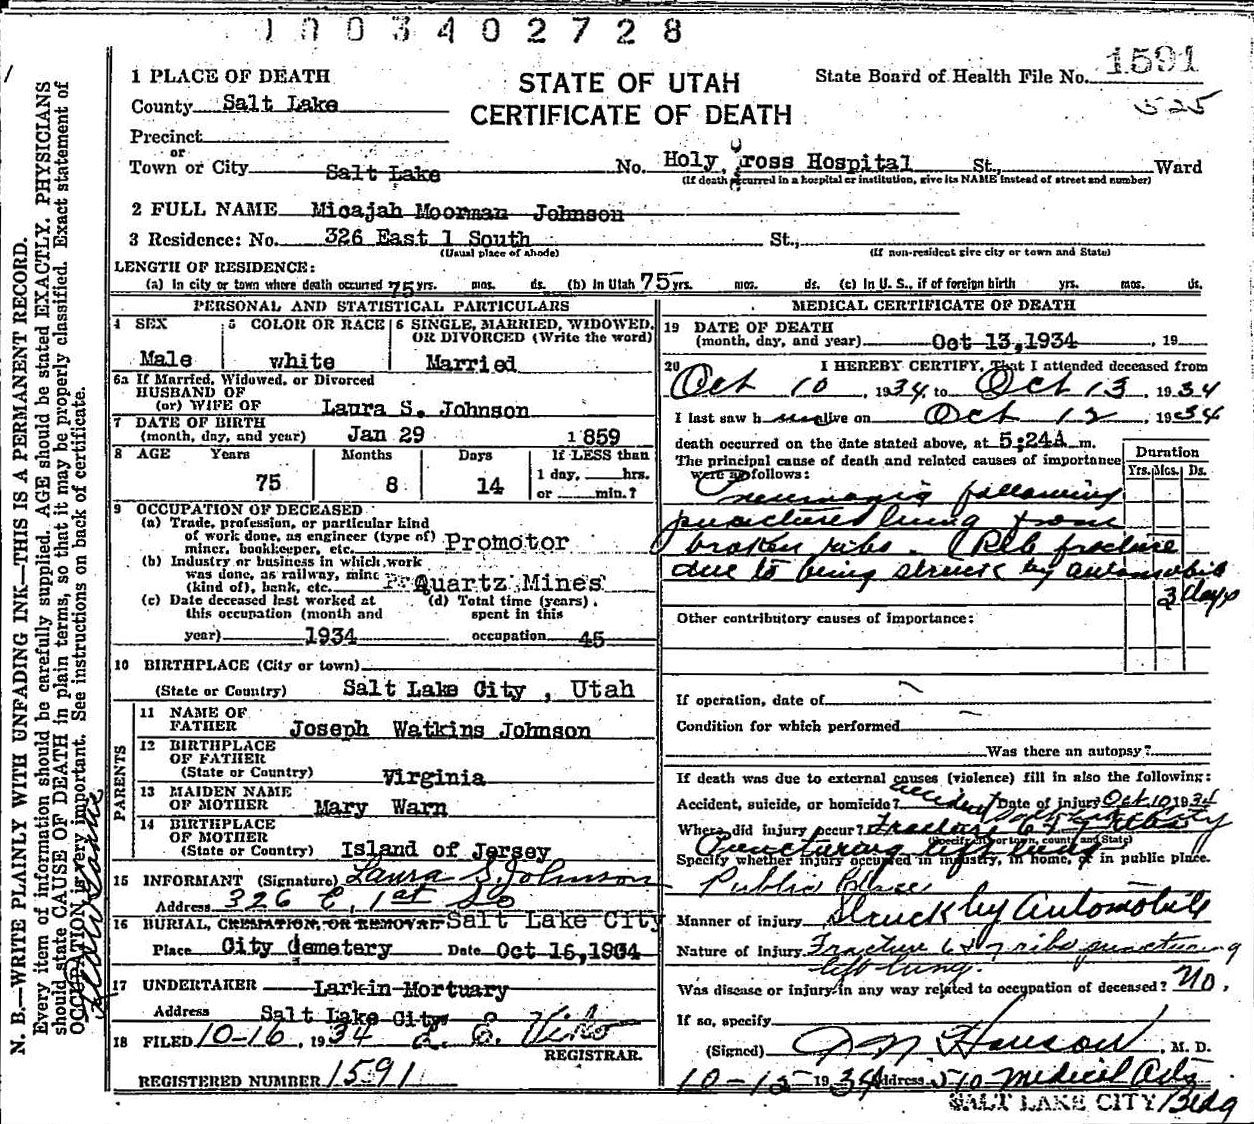 1003402728
1 PLACE OF DEATH
STATE OF UTAH
CERTIFICATE OF DEATH
State Board of Health File No. 1591
525
County Salt Lake
Precinct
or
Town or City Salt Lake No. Holy Cross Hospital St., Ward
(If death occurred in a hospital or institution, give its NAME instead of street and number)
2 FULL NAME Micajah Moorman Johnson
3 Residence: No. 326 East 1 South St.,
(Usual place of abode) (If non-resident give city or town and State)
LENGTH OF RESIDENCE:
(a) In city or town where death occurred 75 yrs. mos. ds. (b) In Utah 75 yrs. mos. ds. (c) In U. S., if of foreign birth yrs. mos. ds.
PERSONAL AND STATISTICAL PARTICULARS
4 SEX 5 COLOR OR RACE 6 SINGLE, MARRIED, WIDOWED, OR DIVORCED (Write the word)
Male white Married
6a If Married, Widowed, or Divorced
HUSBAND OF
(or) WIFE OF Laura S. Johnson
7 DATE OF BIRTH
(month, day, and year) Jan 29 1859
8 AGE Years Months Days If LESS than
1 day, hrs.
75 8 14 or min.?
9 OCCUPATION OF DECEASED
(a) Trade, profession, or particular kind
of work done, as engineer (type of)
miner, bookkeeper, etc. Promotor
(b) Industry or business in which work
was done, as railway, mine
(kind of), bank, etc. Quartz Mines
(c) Date deceased last worked at (d) Total time (years)
this occupation (month and spent in this
year) 1934 occupation 45
10 BIRTHPLACE (City or town)
(State or Country) Salt Lake City, Utah
PARENTS
11 NAME OF
FATHER Joseph Watkins Johnson
12 BIRTHPLACE
OF FATHER
(State or Country) Virginia
13 MAIDEN NAME
OF MOTHER Mary Warn
14 BIRTHPLACE
OF MOTHER
(State or Country) Island of Jersey
15 INFORMANT (Signature) Laura S. Johnson
Address 326 E. 1st So
16 BURIAL, CREMATION, OR REMOVAL Salt Lake City
Place City Cemetery Date Oct 16, 1934
17 UNDERTAKER Larkin Mortuary
Address Salt Lake City
18 FILED 10-16, 1934
REGISTRAR.
REGISTERED NUMBER 1591
MEDICAL CERTIFICATE OF DEATH
19 DATE OF DEATH
(month, day, and year) Oct 13, 1934, 19
20 I HEREBY CERTIFY, That I attended deceased from
Oct 10, 1934, to Oct 13, 1934
I last saw him alive on Oct 12, 1934
death occurred on the date stated above, at 5:24A m.
The principal cause of death and related causes of importance
were as follows:
Duration
Yrs. Mos. Ds.
Pneumonia following
punctured lung from
broken ribs. Rib fracture
due to being struck by automobile
3 days
Other contributory causes of importance:
If operation, date of
Condition for which performed
Was there an autopsy?
If death was due to external causes (violence) fill in also the following:
Accident, suicide, or homicide? accident Date of injury Oct 10 1934
Where did injury occur? Salt Lake City
Fracture 6 & 7 ribs
(Specify city or town, county and State)
Puncturing left lung
Specify whether injury occurred in industry, in home, or in public place.
Public Place
Manner of injury Struck by Automobile
Nature of injury Fracture 6 & 7 ribs puncturing
left lung.
Was disease or injury in any way related to occupation of deceased? No.
If so, specify
(Signed) Hanson, M. D.
10-15-1934 Address 510 Medical Arts
SALT LAKE CITY Bldg
N. B.—WRITE PLAINLY WITH UNFADING INK—THIS IS A PERMANENT RECORD.
Every item of information should be carefully supplied. AGE should be stated EXACTLY. PHYSICIANS
should state CAUSE OF DEATH in plain terms, so that it may be properly classified. Exact statement of
OCCUPATION is very important. See instructions on back of certificate.